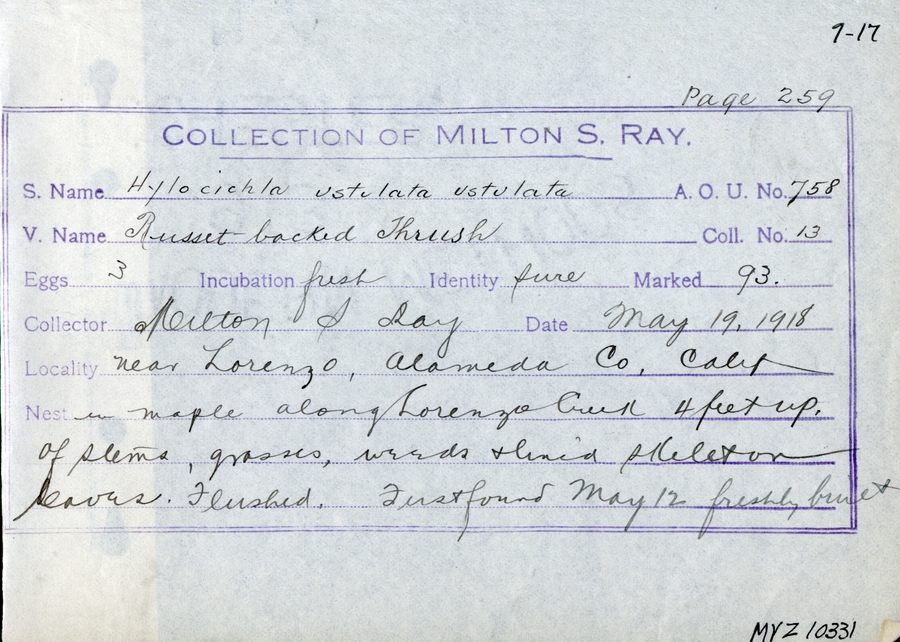 9-17
Page 259
COLLECTION OF MILTON S. RAY.
S. Name Hylocichla ustulata ustulata A. O. U. No. 758
V. Name Russet-backed Thrush Coll. No. 13
Eggs 3 Incubation fresh Identity sure Marked 93.
Collector Milton S Ray Date May 19, 1918
Locality near Lorenzo, Alameda Co, Calif
Nest in maple along Lorenzo Creek 4 feet up.
of stems, grasses, weeds & lined skeleton
leaves. Flushed. First found May 12 freshly built
MVZ 10331